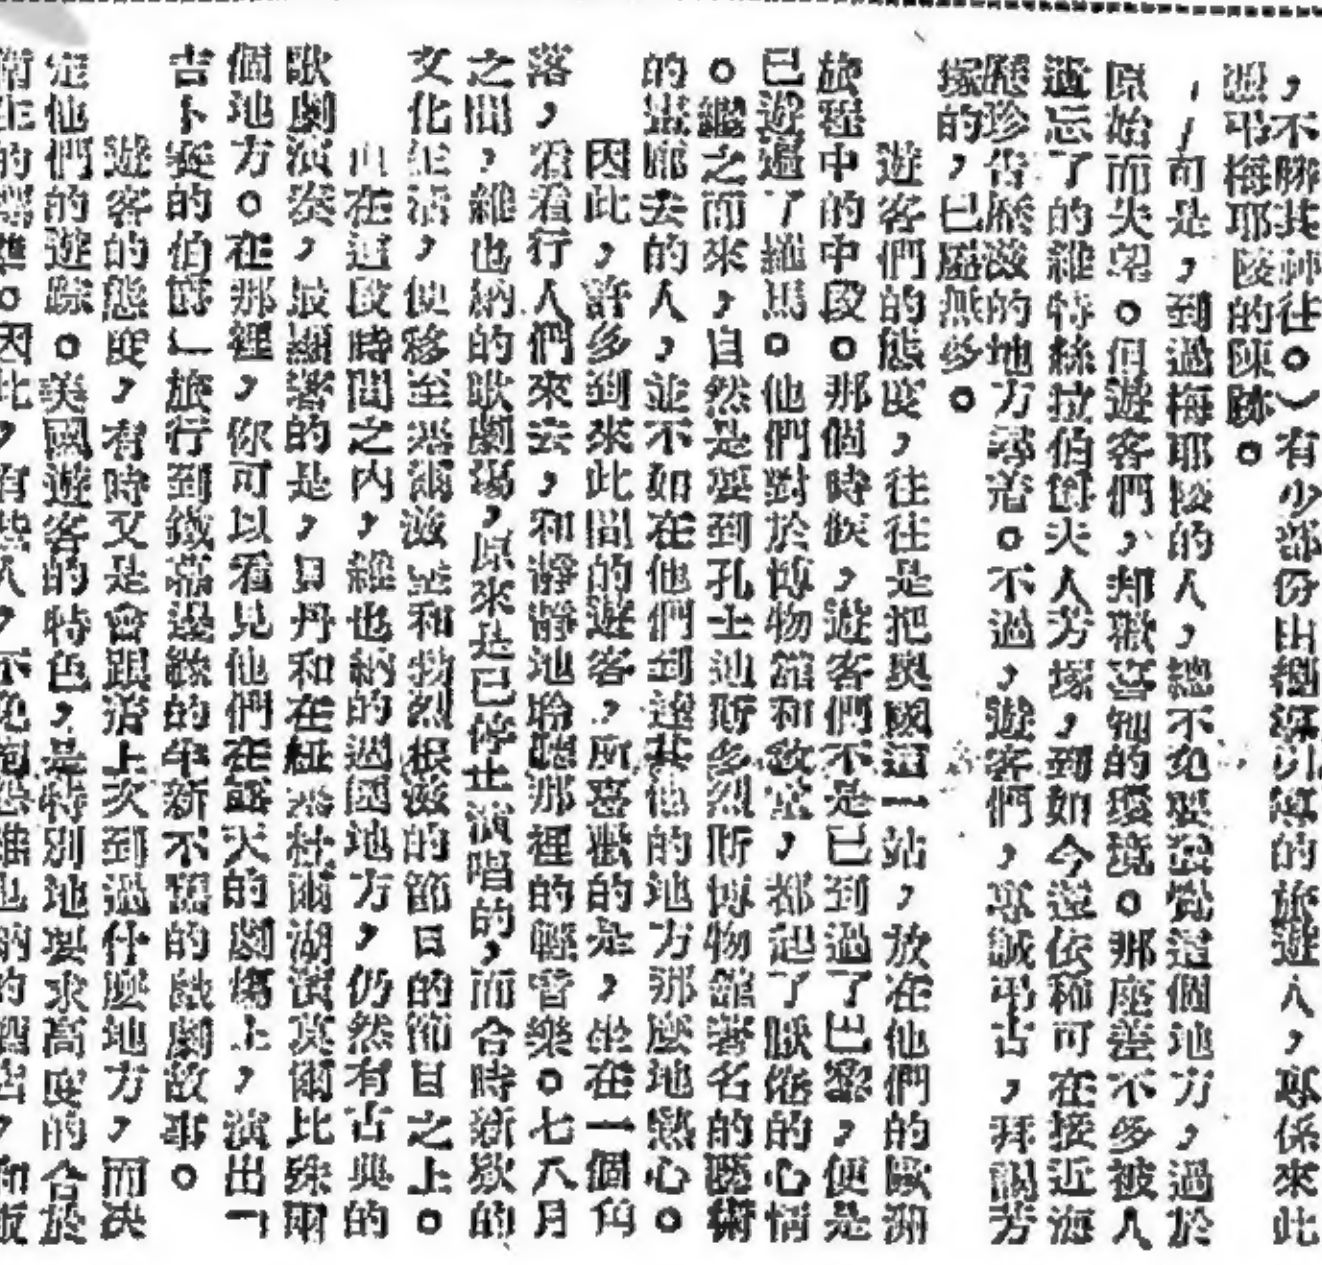 ，不勝其神往。）有少部份由戀深以準的旅遊人，專係來此
憑弔梅耶陵的陳跡。
可是，到過梅耶陵的人，總不免要發覺這個地方，過於
原始而失望。但遊客們，却歡喜她的環境。那座差不多被人
遊忘了的維特絲拉伯爵夫人芳塚，到如今遊依稀可在接近海
歷珍告歷滋的地方尋着。不過，遊客們，專誠弔古，拜謁芳
塚的，已屬無多。
遊客們的態度，往往是把奧國這一站，放在他們的歐洲
旅程中的中段。那個時候，遊客們不是已到過了巴黎，便是
已遊過了羅馬。他們對於博物館和教堂，都起了厭倦的心情
。繼之而來，自然是要到孔士地斯多烈斯博物館著名的藝術
的畫廊去的人，並不如在他們到達其他的地方那麼地熱心。
因此，許多到來此間的遊客，所喜歡的是，坐在一個角
落，看看行人們來去，和靜靜地聆聽那裡的輕音樂。七八月
之間，維也納的歌劇場，原來是已停止演唱的，而合時新歡的
文化生活，便移至潘爾滋堡和勃烈根滋的節日的節目之上。
但在這段時間之內，維也納的過國地方，仍然有古典的
歌劇演奏，最顯著的是，貝丹和在紐潘杜爾湖演莫爾比殊爾
個地方。在那裡，你可以看見他們在露天的劇塲上，演出「
吉卜賽的伯爵」旅行到鐵幕邊緣的牟新不露的戲劇故事。
遊客的態度，有時又是會跟着上次到過什麼地方，而决
定他們的遊踪。美國遊客的特色，是特別地要求高度的合於
衛生的標準。因此，有些人，不免抱怨維也納的酒店，和飯